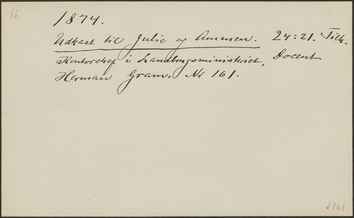 16
1874.
Udkast til Julie og Ammen. 24:21. Tilh.
Kontorchef i Landbrugsministeriet, Docent
Herman Gram. Nr 161.